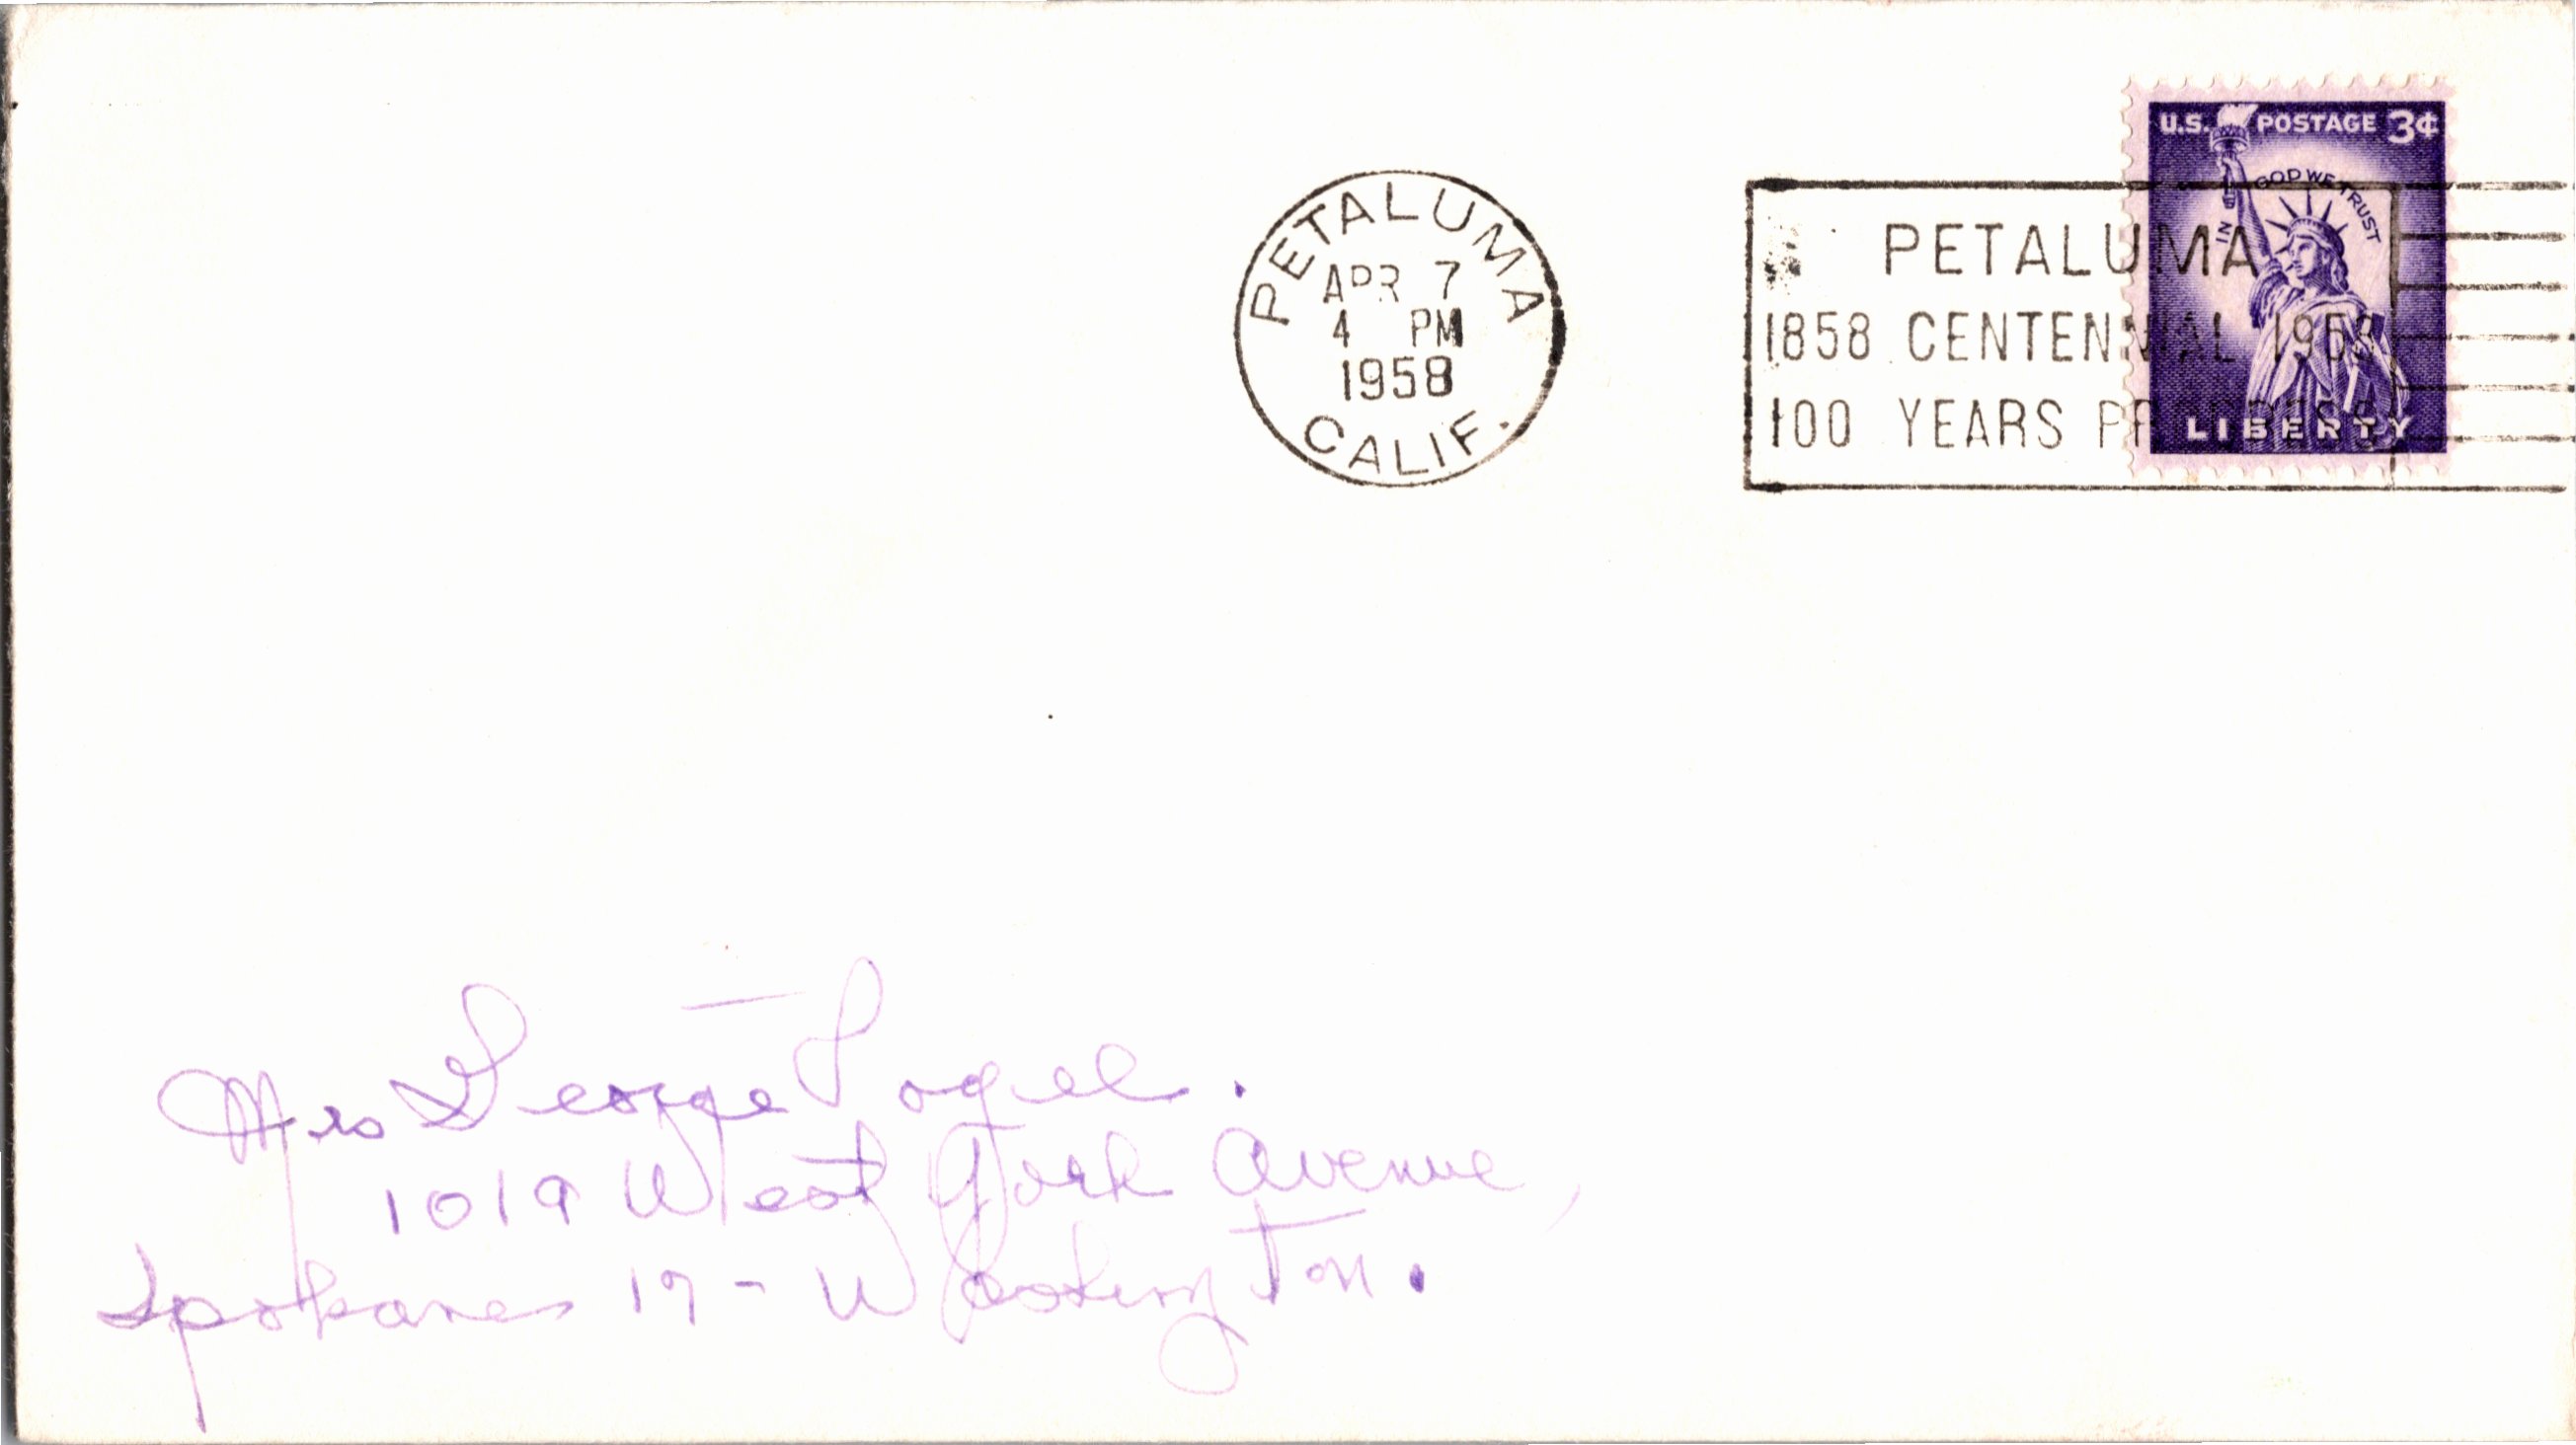 PETALUMA
APR 7
4 PM
1958
CALIF.
PETALUMA
1858 CENTENNIAL 1958
100 YEARS PROGRESS
U.S. POSTAGE 3¢
IN GOD WE TRUST
LIBERTY
Mrs George
1019 West York Avenue,
Spokane 17 - Washington.